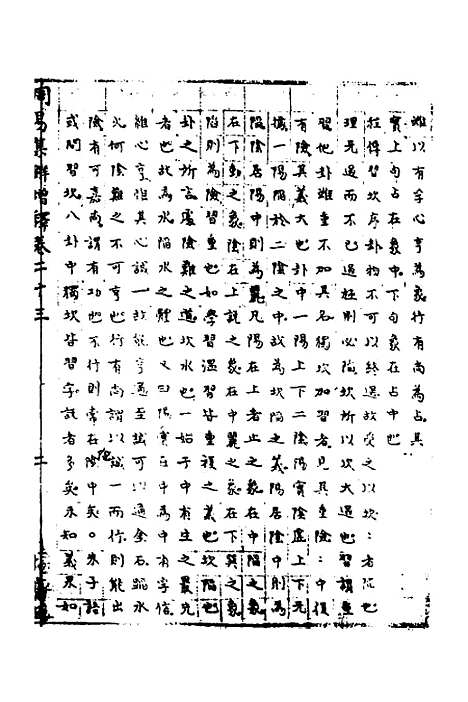 雖以有孚心亨為象行有尚為占其
實上句占在象中下句象在占中也
程傳習坎序卦物不可以終過故受之以坎坎者陷也
理无過而不已過極則必陷坎所以次大過也習謂重
習他卦雖重不加其名獨坎加習者見其重險險中復
有險其義大也卦中一陽上下二陰陽實陰虛上下无
據一陽陷於二陰之中故為坎陷之義陽居陰中則為
陷陰居陽中則為麗凡陽在上者止之象在中陷之象
在下動之象陰在上說之象在中麗之象在下巽之象
陷則為險習重也如學習溫習皆重複之義也坎陷也
卦之所言處險難之道坎水也一始于中有生之最先
者也故為水陷水之體也又曰陽實在中為中有孚信
維心亨惟其心誠一故能亨通至誠可以通金石蹈水
火何險難之不可亨也行有尚謂以誠一而行則能出
險有可嘉尚謂有功也不行則常在險中矣○朱子語
或問習坎八卦中獨坎皆習字說者多矣未知義果如
周易集解增釋卷二十三
二